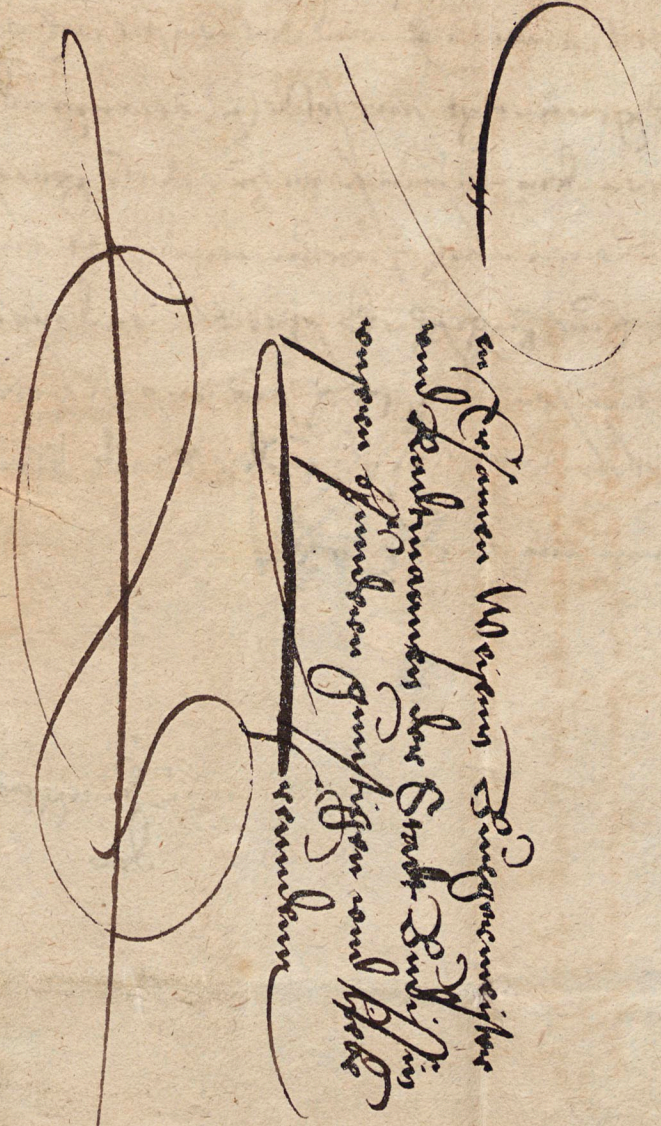 Den Erbamen Weisenn Burgermeister
vnd Radtmannen der Stadt Budissin
vnsern besundern gunstigen vnd lieben
freundenn